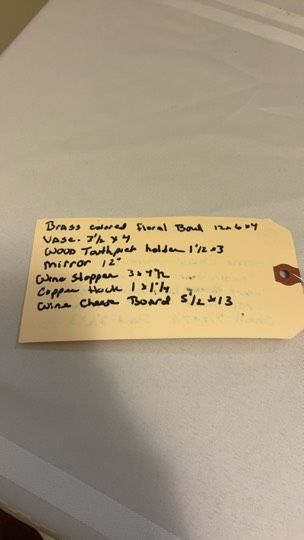 Brass colored floral Bowl 12x6x4
Vase. 3 1/2 x 4
Wood Toothpick holder 1 1/2 x 3
Mirror 12"
Wine Stopper 3x4 1/2
Copper 1 x 1 1/4
Wine Cheese Board 5 1/2 x 13